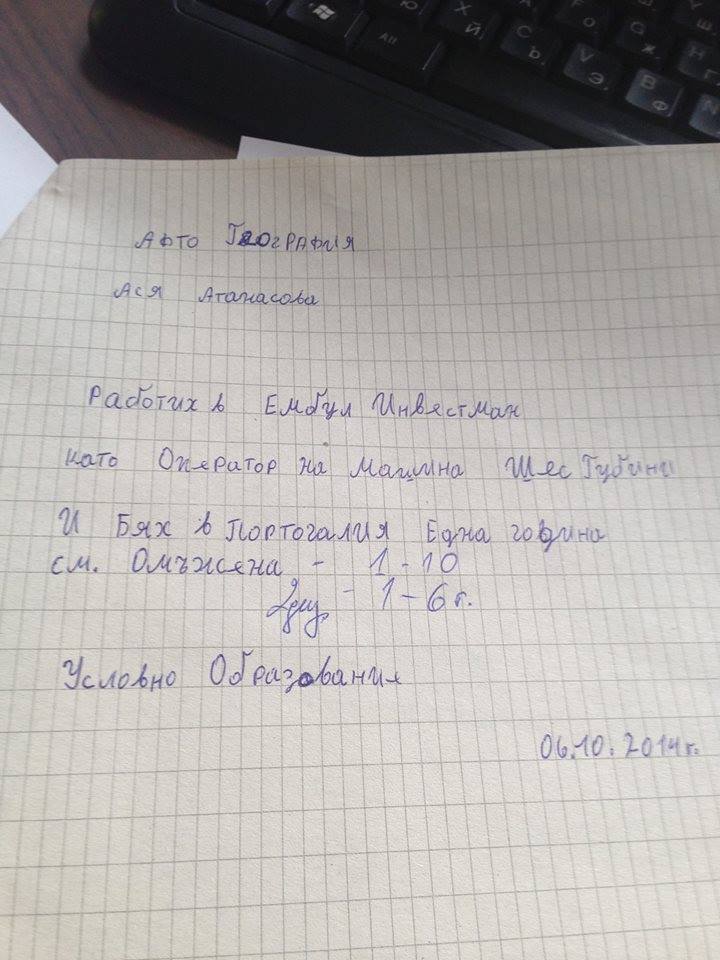 Ю
X Й
Ш
F О
G Ж
H Г
Alt
C Ъ
V Э
B Ф
N
Афто География
Ася Атанасова
Работих в Ембул Инвестман
като Оператор на Машина Шес Губини
И Бях в Портогалия Една година
см. Омъжена - 1-10
- 1-6 г.
Условно Образование
06.10.2014г.